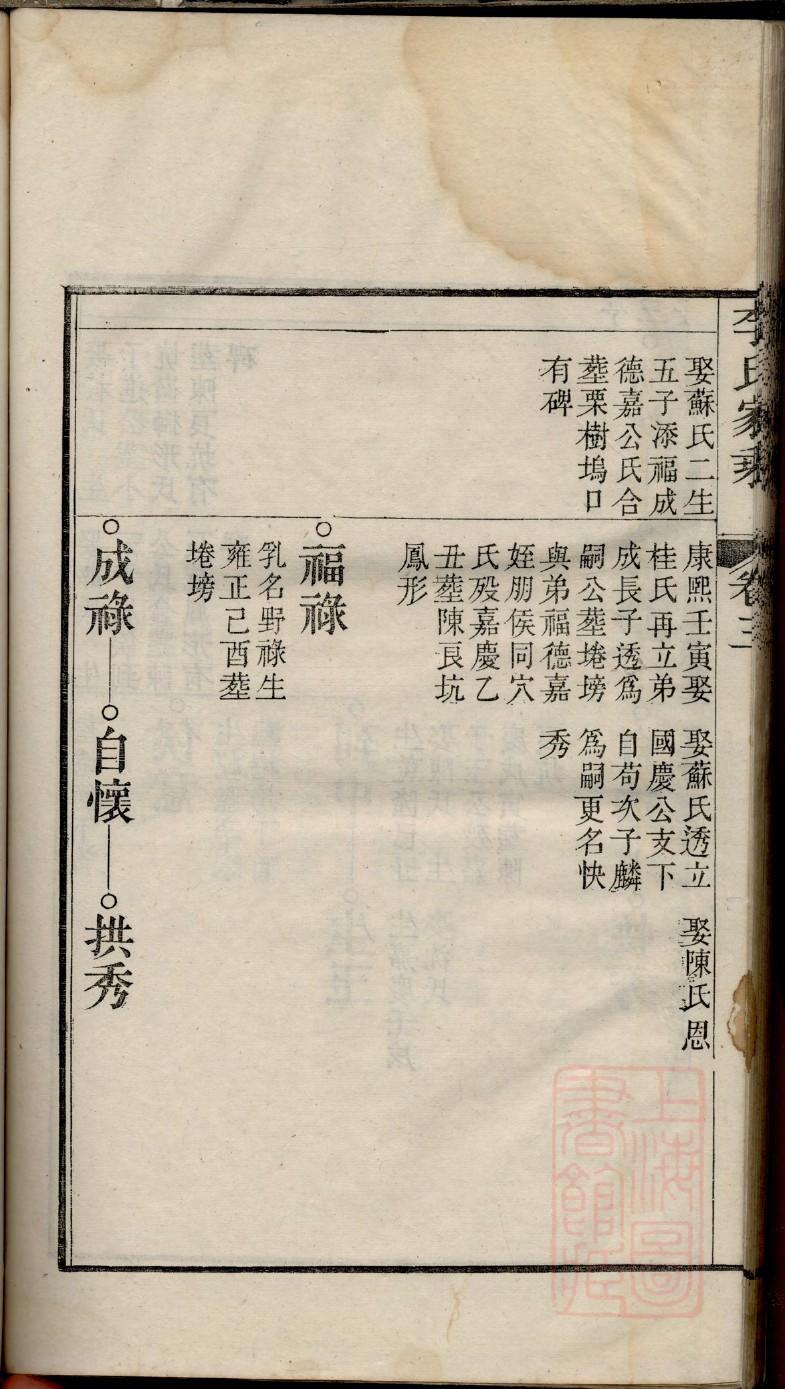 李氏家乘
卷三
娶蘇氏二生
五子添福成
德嘉公氏合
塟栗樹塢口
有碑
康熙壬寅娶
桂氏再立弟
成長子透爲
嗣公塟埢塝
與弟福德嘉
姪朋侯同穴
氏殁嘉慶乙
丑塟陳良坑
鳳形
娶蘇氏透立
國慶公支下
自苟次子麟
爲嗣更名快
秀
娶陳氏恩
福祿
乳名野祿生
雍正己酉塟
埢塝
成祿
自懷
拱秀
上海圖
書館藏